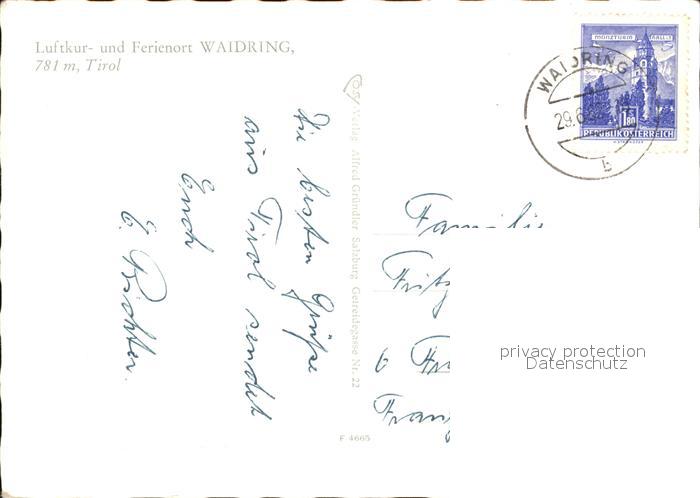 Luftkur- und Ferienort WAIDRING,
781 m, Tirol
Verlag Alfred Gründler Salzburg Getreidegasse Nr. 22
F 4665
Die besten Grüße
aus Tirol sendet
Euch
E. Richter.
MÜNZTURM HALL I.
1.80
REPUBLIK ÖSTERREICH
WAIDRING
29.6
b
Familie
Fritz
6
privacy protection
Datenschutz